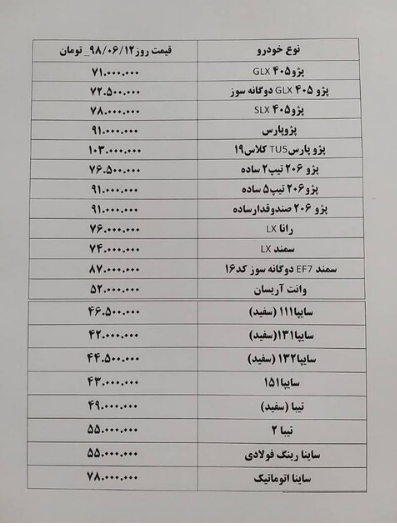 نوع خودرو قیمت روز ۹۸/۰۶/۱۲_ تومان
پژو ۴۰۵ GLX ۷۱.۰۰۰.۰۰۰
پژو ۴۰۵ GLX دوگانه سوز ۷۲.۵۰۰.۰۰۰
پژو ۴۰۵ SLX ۷۸.۰۰۰.۰۰۰
پژوپارس ۹۱.۰۰۰.۰۰۰
پژو پارس TU5 کلاس۱۹ ۱۰۳.۰۰۰.۰۰۰
پژو ۲۰۶ تیپ۲ ساده ۷۶.۵۰۰.۰۰۰
پژو۲۰۶ تیپ۵ ساده ۹۱.۰۰۰.۰۰۰
پژو ۲۰۶ صندوقدارساده ۹۱.۰۰۰.۰۰۰
رانا LX ۷۶.۰۰۰.۰۰۰
سمند LX ۷۴.۰۰۰.۰۰۰
سمند EF7 دوگانه سوز کد۱۶ ۸۷.۰۰۰.۰۰۰
وانت آریسان ۵۲.۰۰۰.۰۰۰
سایپا۱۱۱ (سفید) ۴۶.۵۰۰.۰۰۰
سایپا۱۳۱(سفید) ۴۲.۰۰۰.۰۰۰
سایپا۱۳۲ (سفید) ۴۴.۵۰۰.۰۰۰
سایپا۱۵۱ ۴۳.۰۰۰.۰۰۰
تیبا (سفید) ۴۹.۰۰۰.۰۰۰
تیبا ۲ ۵۵.۰۰۰.۰۰۰
ساینا رینگ فولادی ۵۵.۰۰۰.۰۰۰
ساینا اتوماتیک ۷۸.۰۰۰.۰۰۰